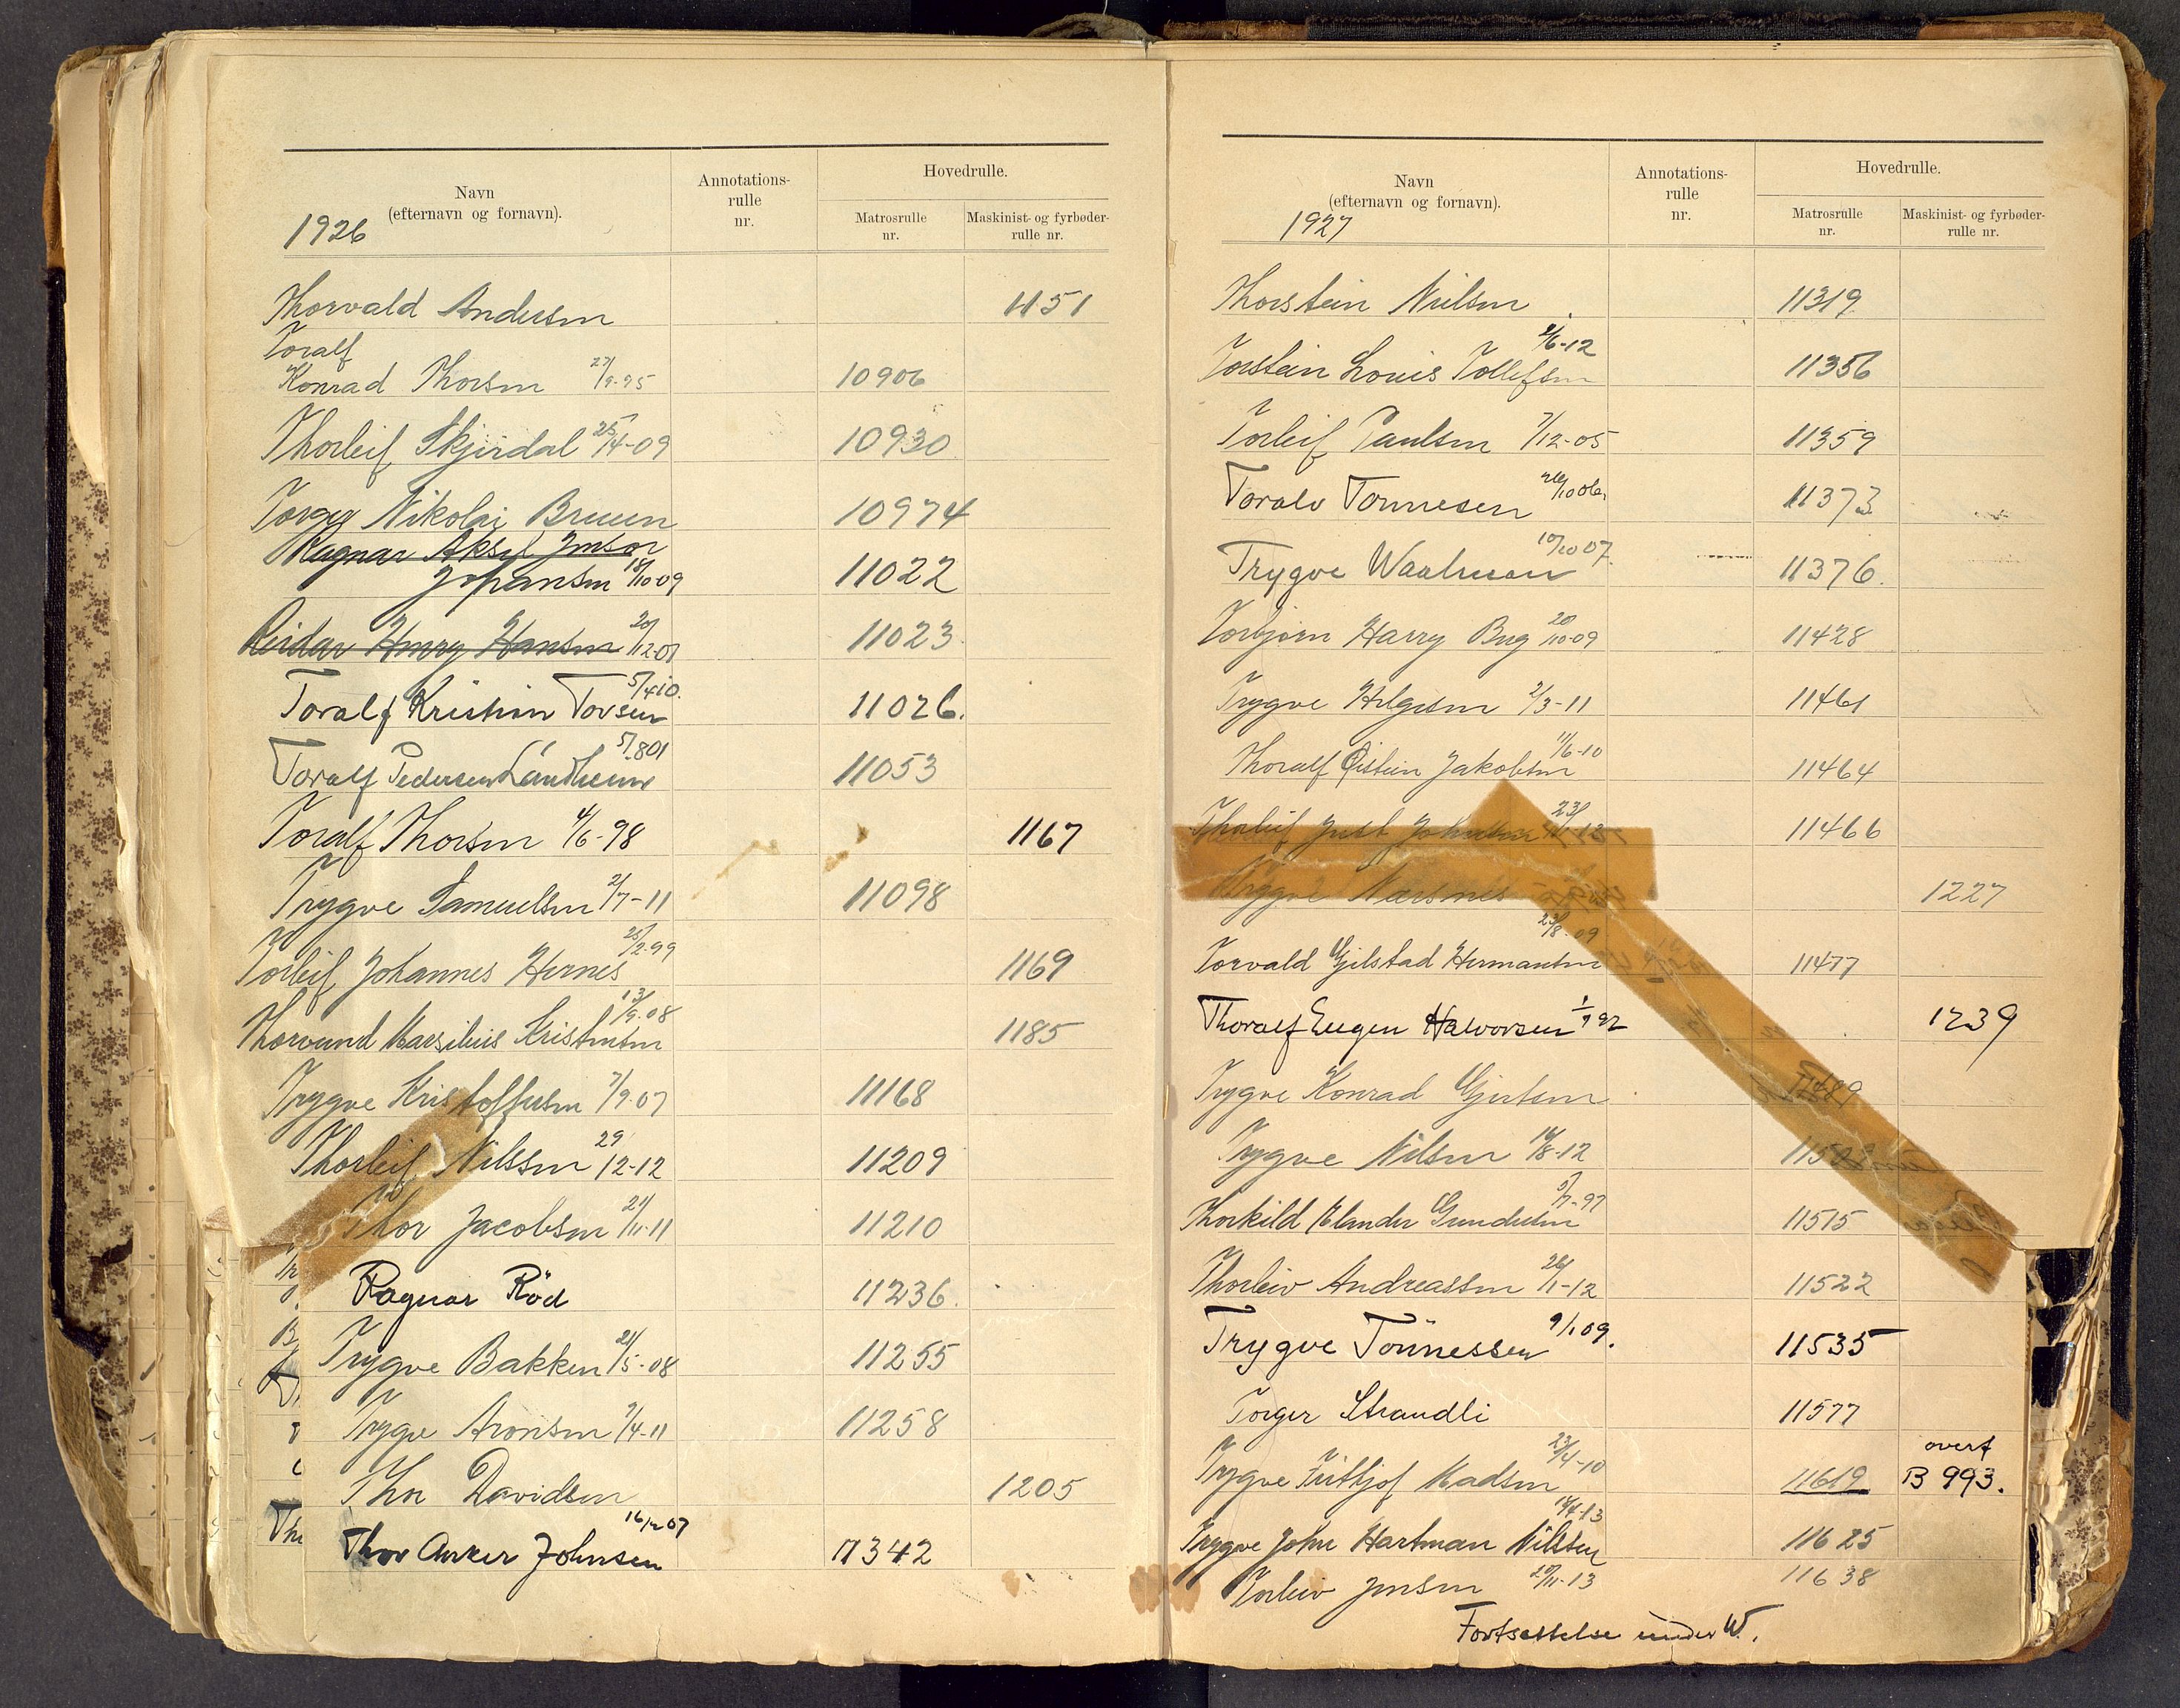 Navn
(efternavn og fornavn).
1926
Annotations-
rulle
nr.
Hovedrulle.
Matrosrulle
nr.
Maskinist- og fyrbøder-
rulle nr.
Thorvald Andersen 1151
Toralf
Konrad Thorsen 27/9-95 10906
Thorleif Skjerdal 25/4-09 10930
Torger Nikolai Bruun 10974
Ragnar Aksel Jensen
Johansen 18/10-09 11022
Reidar Henry Hansen 20/12-07 11023
Toralf Kristian Tovsen 5/4 10. 11026.
Toralf Pedersen 5/8 01 11053
Toralf Thorsen 4/6-98 1167
Trygve Samuelsen 2/7-11 11098
Torleif Johannes Hernes 25/2-99 1169
Thorvund Marsilius Kristensen 13/9-08 1185
Trygve Kristoffersen 7/9-07 11168
Thorleif Nilssen 29/12-12 11209
Thor Jacobsen 21/11-11 11210
Ragnar Röd 11236.
Trygve Bakken 21/5-08 11255
Trygve Aronsen 7/4-11 11258
Thor Davidsen 1205
Thor Anker Johnsen 16/12 07 11342
Navn
(efternavn og fornavn).
1927
Annotations-
rulle
nr.
Hovedrulle.
Matrosrulle
nr.
Maskinist- og fyrbøder-
rulle nr.
Thorstein Nielsen 11319
Torstein Louis Tollefsen 2/6-12 11356
Torleif Paulsen 7/12-05 11359
Toralv Tønnesen 26/10 06. 11373
Trygve 10/10 07. 11376.
Torbjørn Harry Bug 20/10-09 11428
Trygve Helgesen 2/3-11 11461
Thoralf Øistein Jakobsen 11/6-10 11464
Thorleif Just Johnsen 23/11-12 11466
Trygve Næsnes 1227
Torvald Gjelstad Hermansen 23/8-09 11477
Thoralf Eugen Halvorsen 1/7 92 1239
Trygve Konrad Gjertsen 11489
Trygve Nilsen 14/8-12
Thorkild Elander Gundersen 5/7-97 11515
Thorleiv Andreassen 26/11-12 11522
Trygve Tönnessen 9/1 09. 11535
Torger Strandli 11577
Trygve Fritjof Madsen 23/4-10 11619 overf B 993.
Trygve John Hartman Nilsen 14/4-13 11625
Torleiv Jensen 29/11-13 11638
Fortsettelse under W.